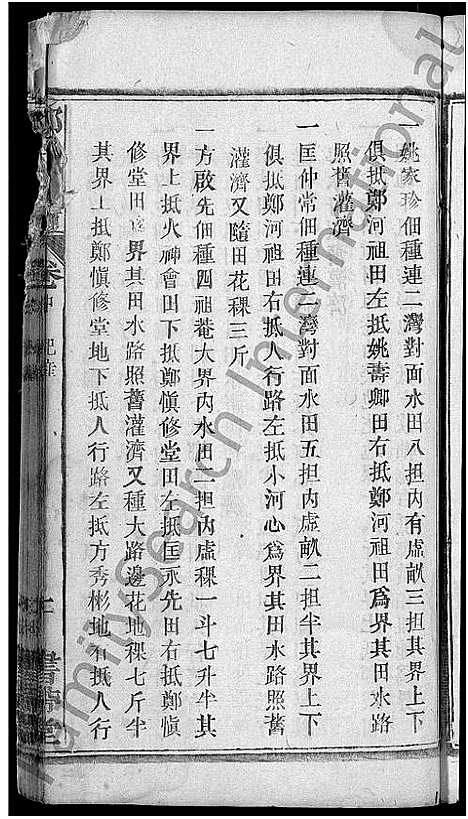 一姚家珍佃種連二灣對面水田八担內有虛畝三担其界上下
俱抵鄭河祖田左抵姚壽卿田右抵鄭河祖田為界其田水路
照舊灌濟
一匡仲常佃種連二灣對面水田五担內虛畝二担半其界上下
俱抵鄭河祖田右抵人行路左抵小河心為界其田水路照舊
灌濟又隨田花稞三斤
一方啟先佃種四祖菴大界內水田二担內虛稞一斗七升半其
界上抵火神會田下抵鄭慎修堂田左抵匡永先田右抵鄭慎
修堂田為界其田水路照舊灌濟又種大路邊花地稞七斤半
其界上抵鄭慎修堂地下抵人行路左抵方秀彬地右抵人行
卷中
書帶堂
FamilySearch International